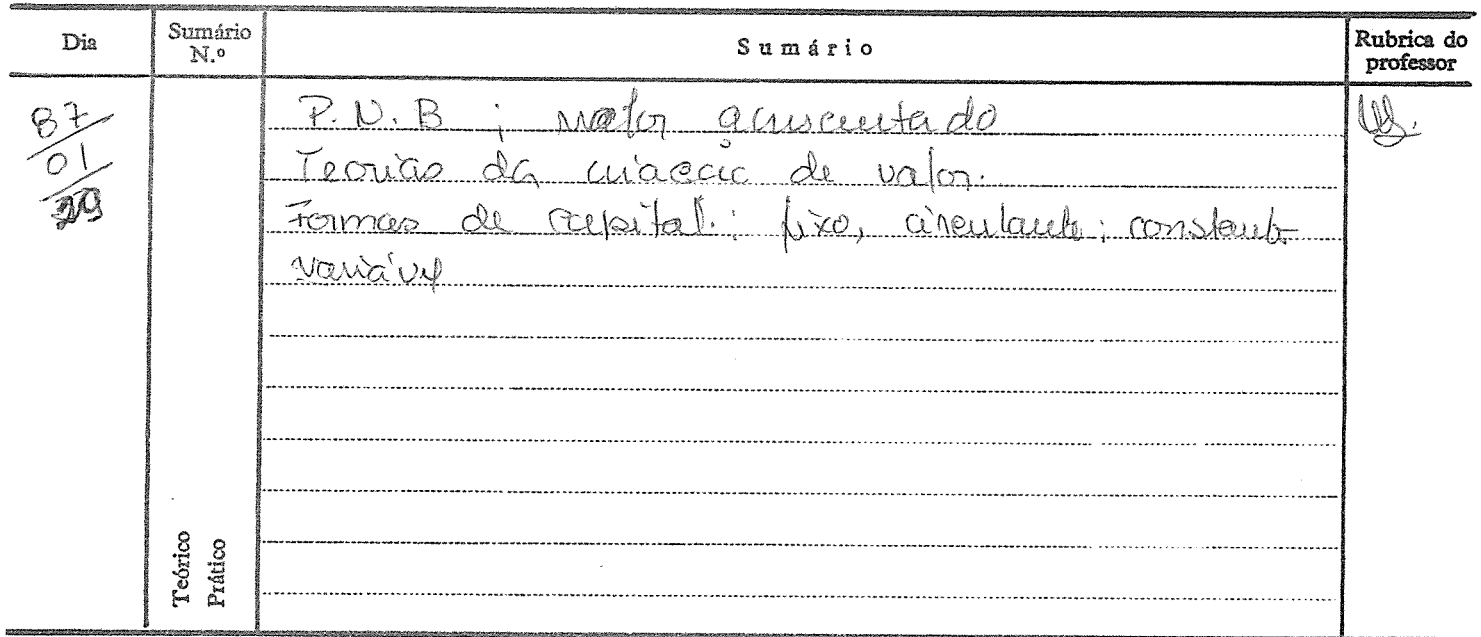 Dia
Sumário N.º
Sumário
Rubrica do professor
87/01/29
P.N.B ; valor acrescentado
Teorias da criação de valor.
Formas de capital: fixo, circulante; constante
variável
Teórico
Prático